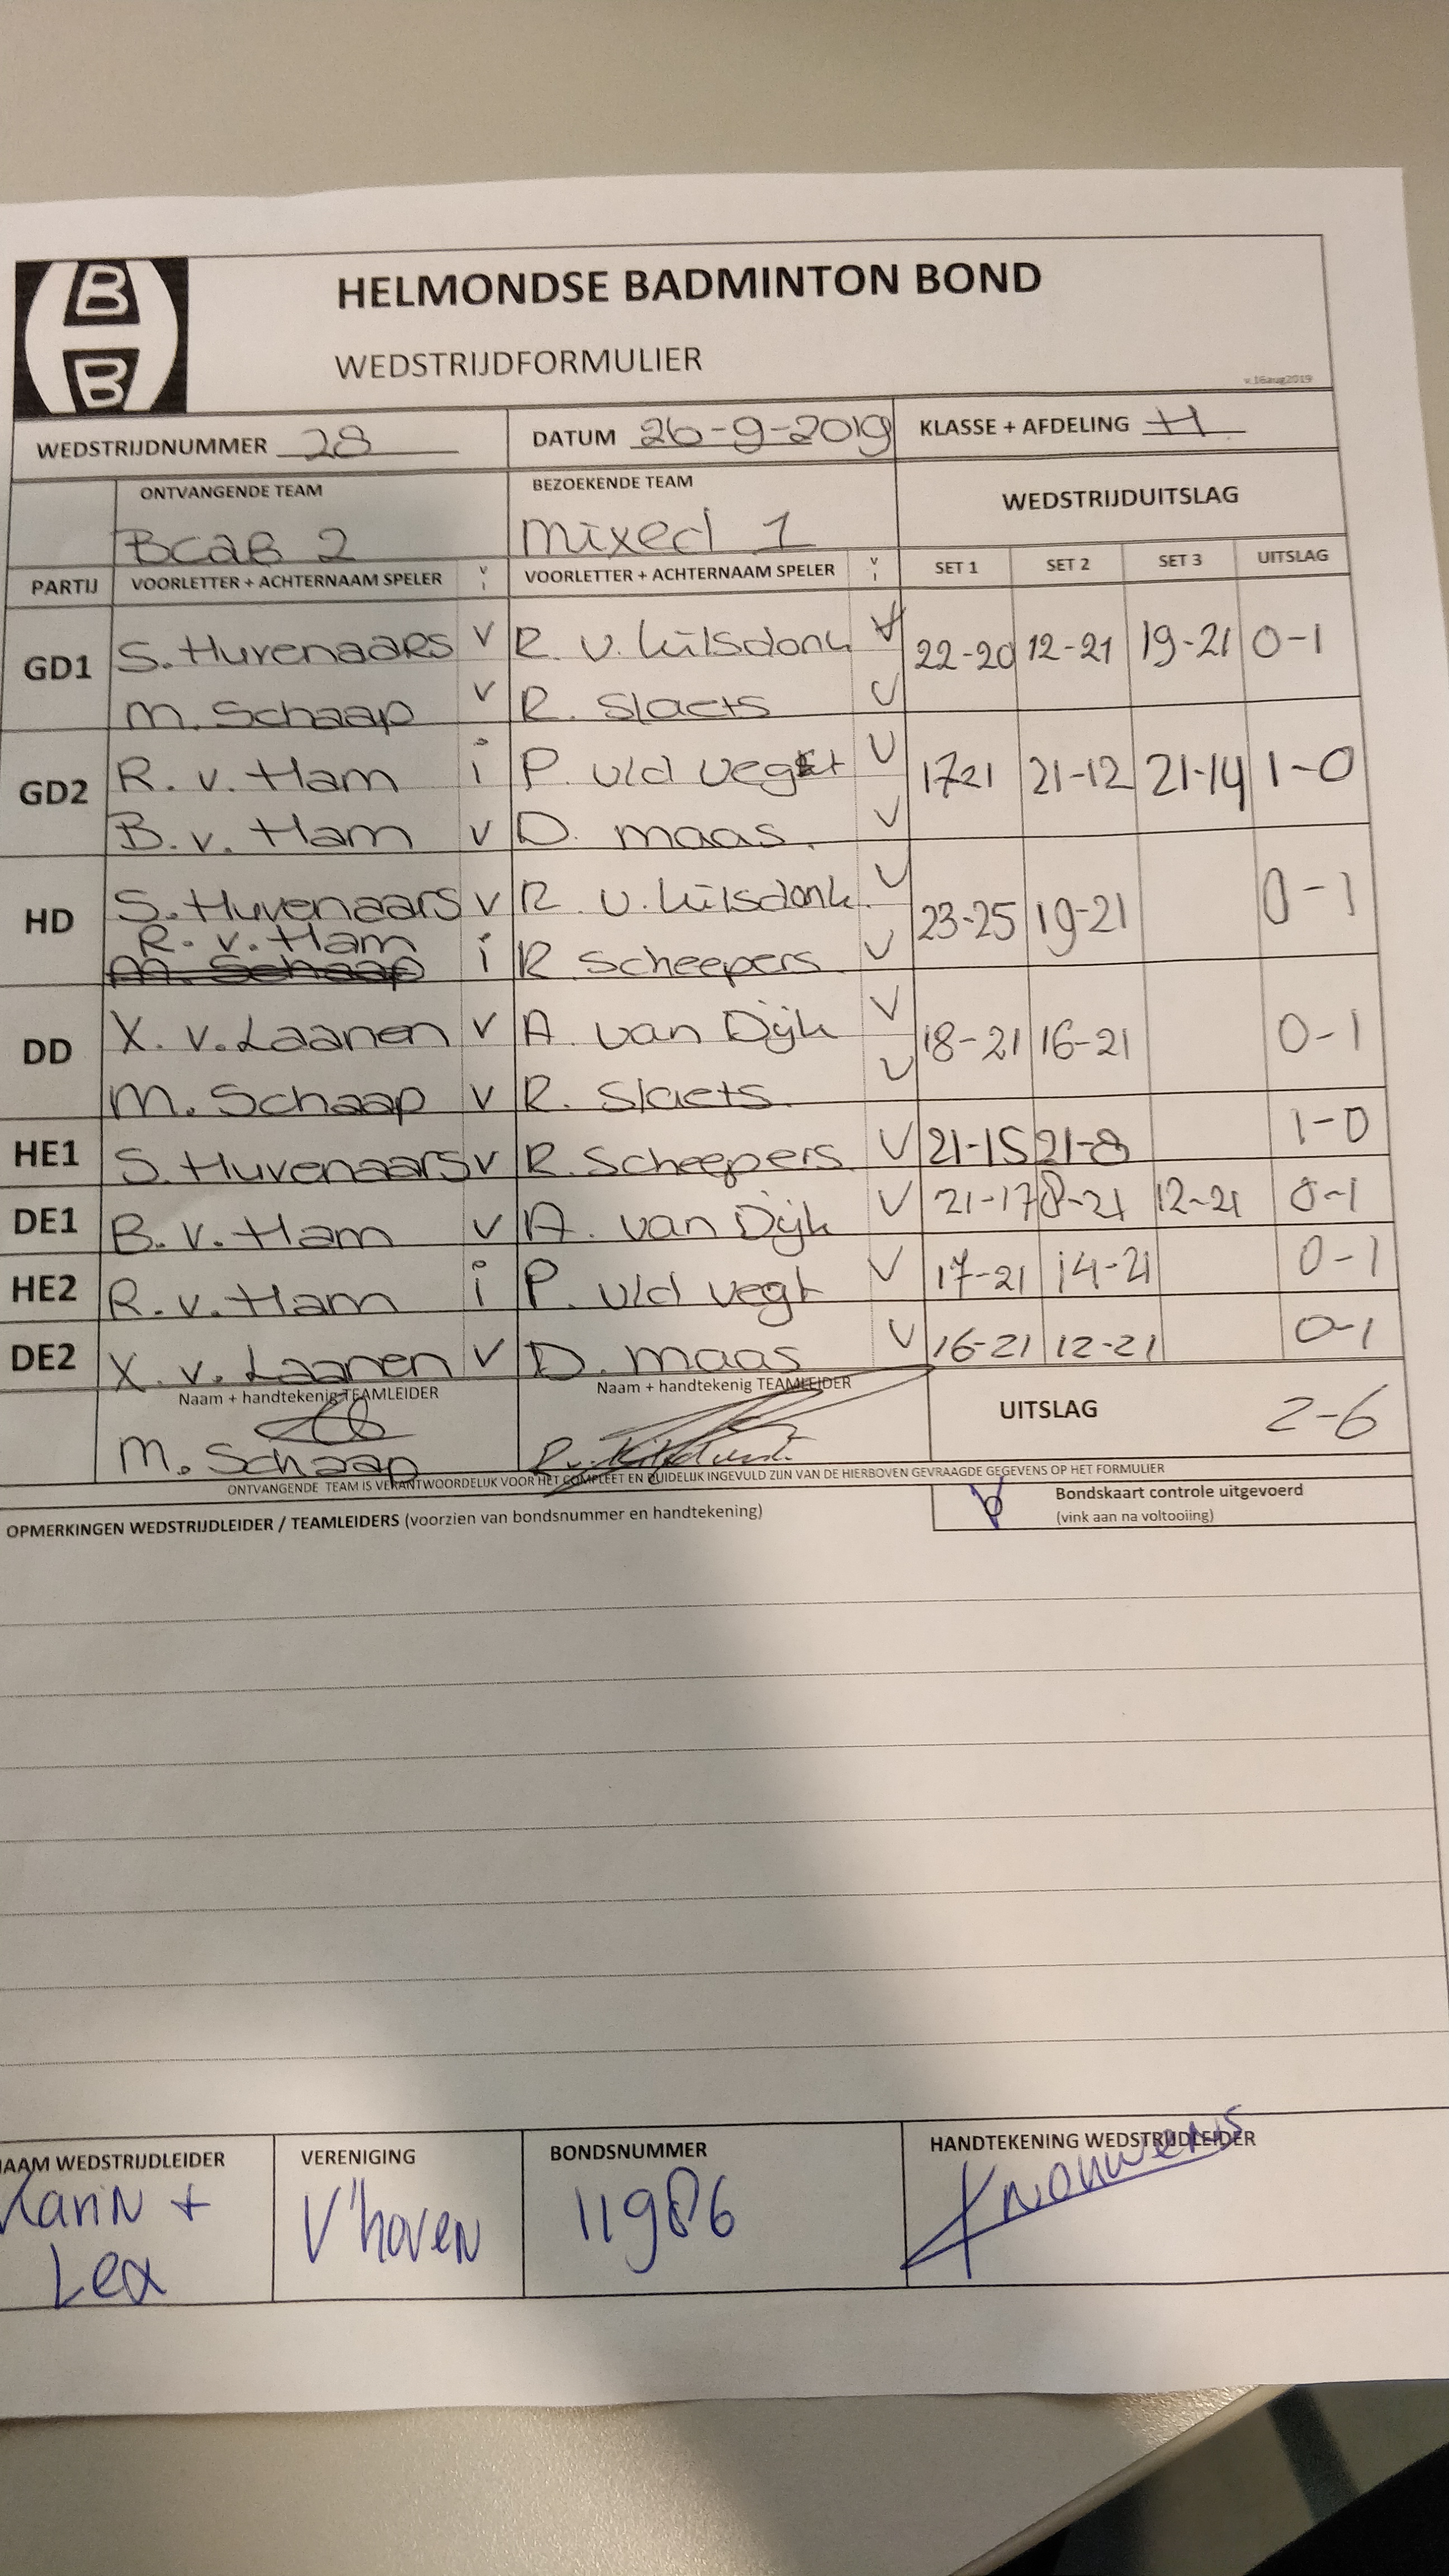 B
B
HELMONDSE BADMINTON BOND
WEDSTRIJDFORMULIER
v.16aug2019
WEDSTRIJDNUMMER 28 DATUM 26-9-2019 KLASSE + AFDELING H
ONTVANGENDE TEAM BEZOEKENDE TEAM WEDSTRIJDUITSLAG
BCAB 2 mixed 1
PARTIJ VOORLETTER + ACHTERNAAM SPELER V I VOORLETTER + ACHTERNAAM SPELER V I SET 1 SET 2 SET 3 UITSLAG
GD1 S. Huvenaars v R. v. Kilsdonk v 22-20 12-21 19-21 0-1
M. Schaap v R. Slaets v
GD2 R. v. Ham i P. v/d Vegt v 17-21 21-12 21-14 1-0
B. v. Ham v D. maas. v
HD S. Huvenaars v R. v. Kilsdonk. v 23-25 19-21 0-1
R. v. Ham
M. Schaap i R Scheepers v
DD X. v. Laanen v A. van Dijk v 18-21 16-21 0-1
M. Schaap v R. Slaets. v
HE1 S. Huvenaars v R. Scheepers. v 21-15 21-8 1-0
DE1 B. v. Ham v A. van Dijk v 21-17 8-21 12-21 0-1
HE2 R. v. Ham i P. v/d vegt v 17-21 14-21 0-1
DE2 X. v. Laanen v D. maas v 16-21 12-21 0-1
Naam + handtekenig TEAMLEIDER Naam + handtekenig TEAMLEIDER UITSLAG 2-6
M. Schaap
ONTVANGENDE TEAM IS VERANTWOORDELIJK VOOR HET COMPLEET EN DUIDELIJK INGEVULD ZIJN VAN DE HIERBOVEN GEVRAAGDE GEGEVENS OP HET FORMULIER
OPMERKINGEN WEDSTRIJDLEIDER / TEAMLEIDERS (voorzien van bondsnummer en handtekening) Bondskaart controle uitgevoerd
(vink aan na voltooiing)
NAAM WEDSTRIJDLEIDER VERENIGING BONDSNUMMER HANDTEKENING WEDSTRIJDLEIDER
Karin + V'hoven 11986 Knouwens
Lex